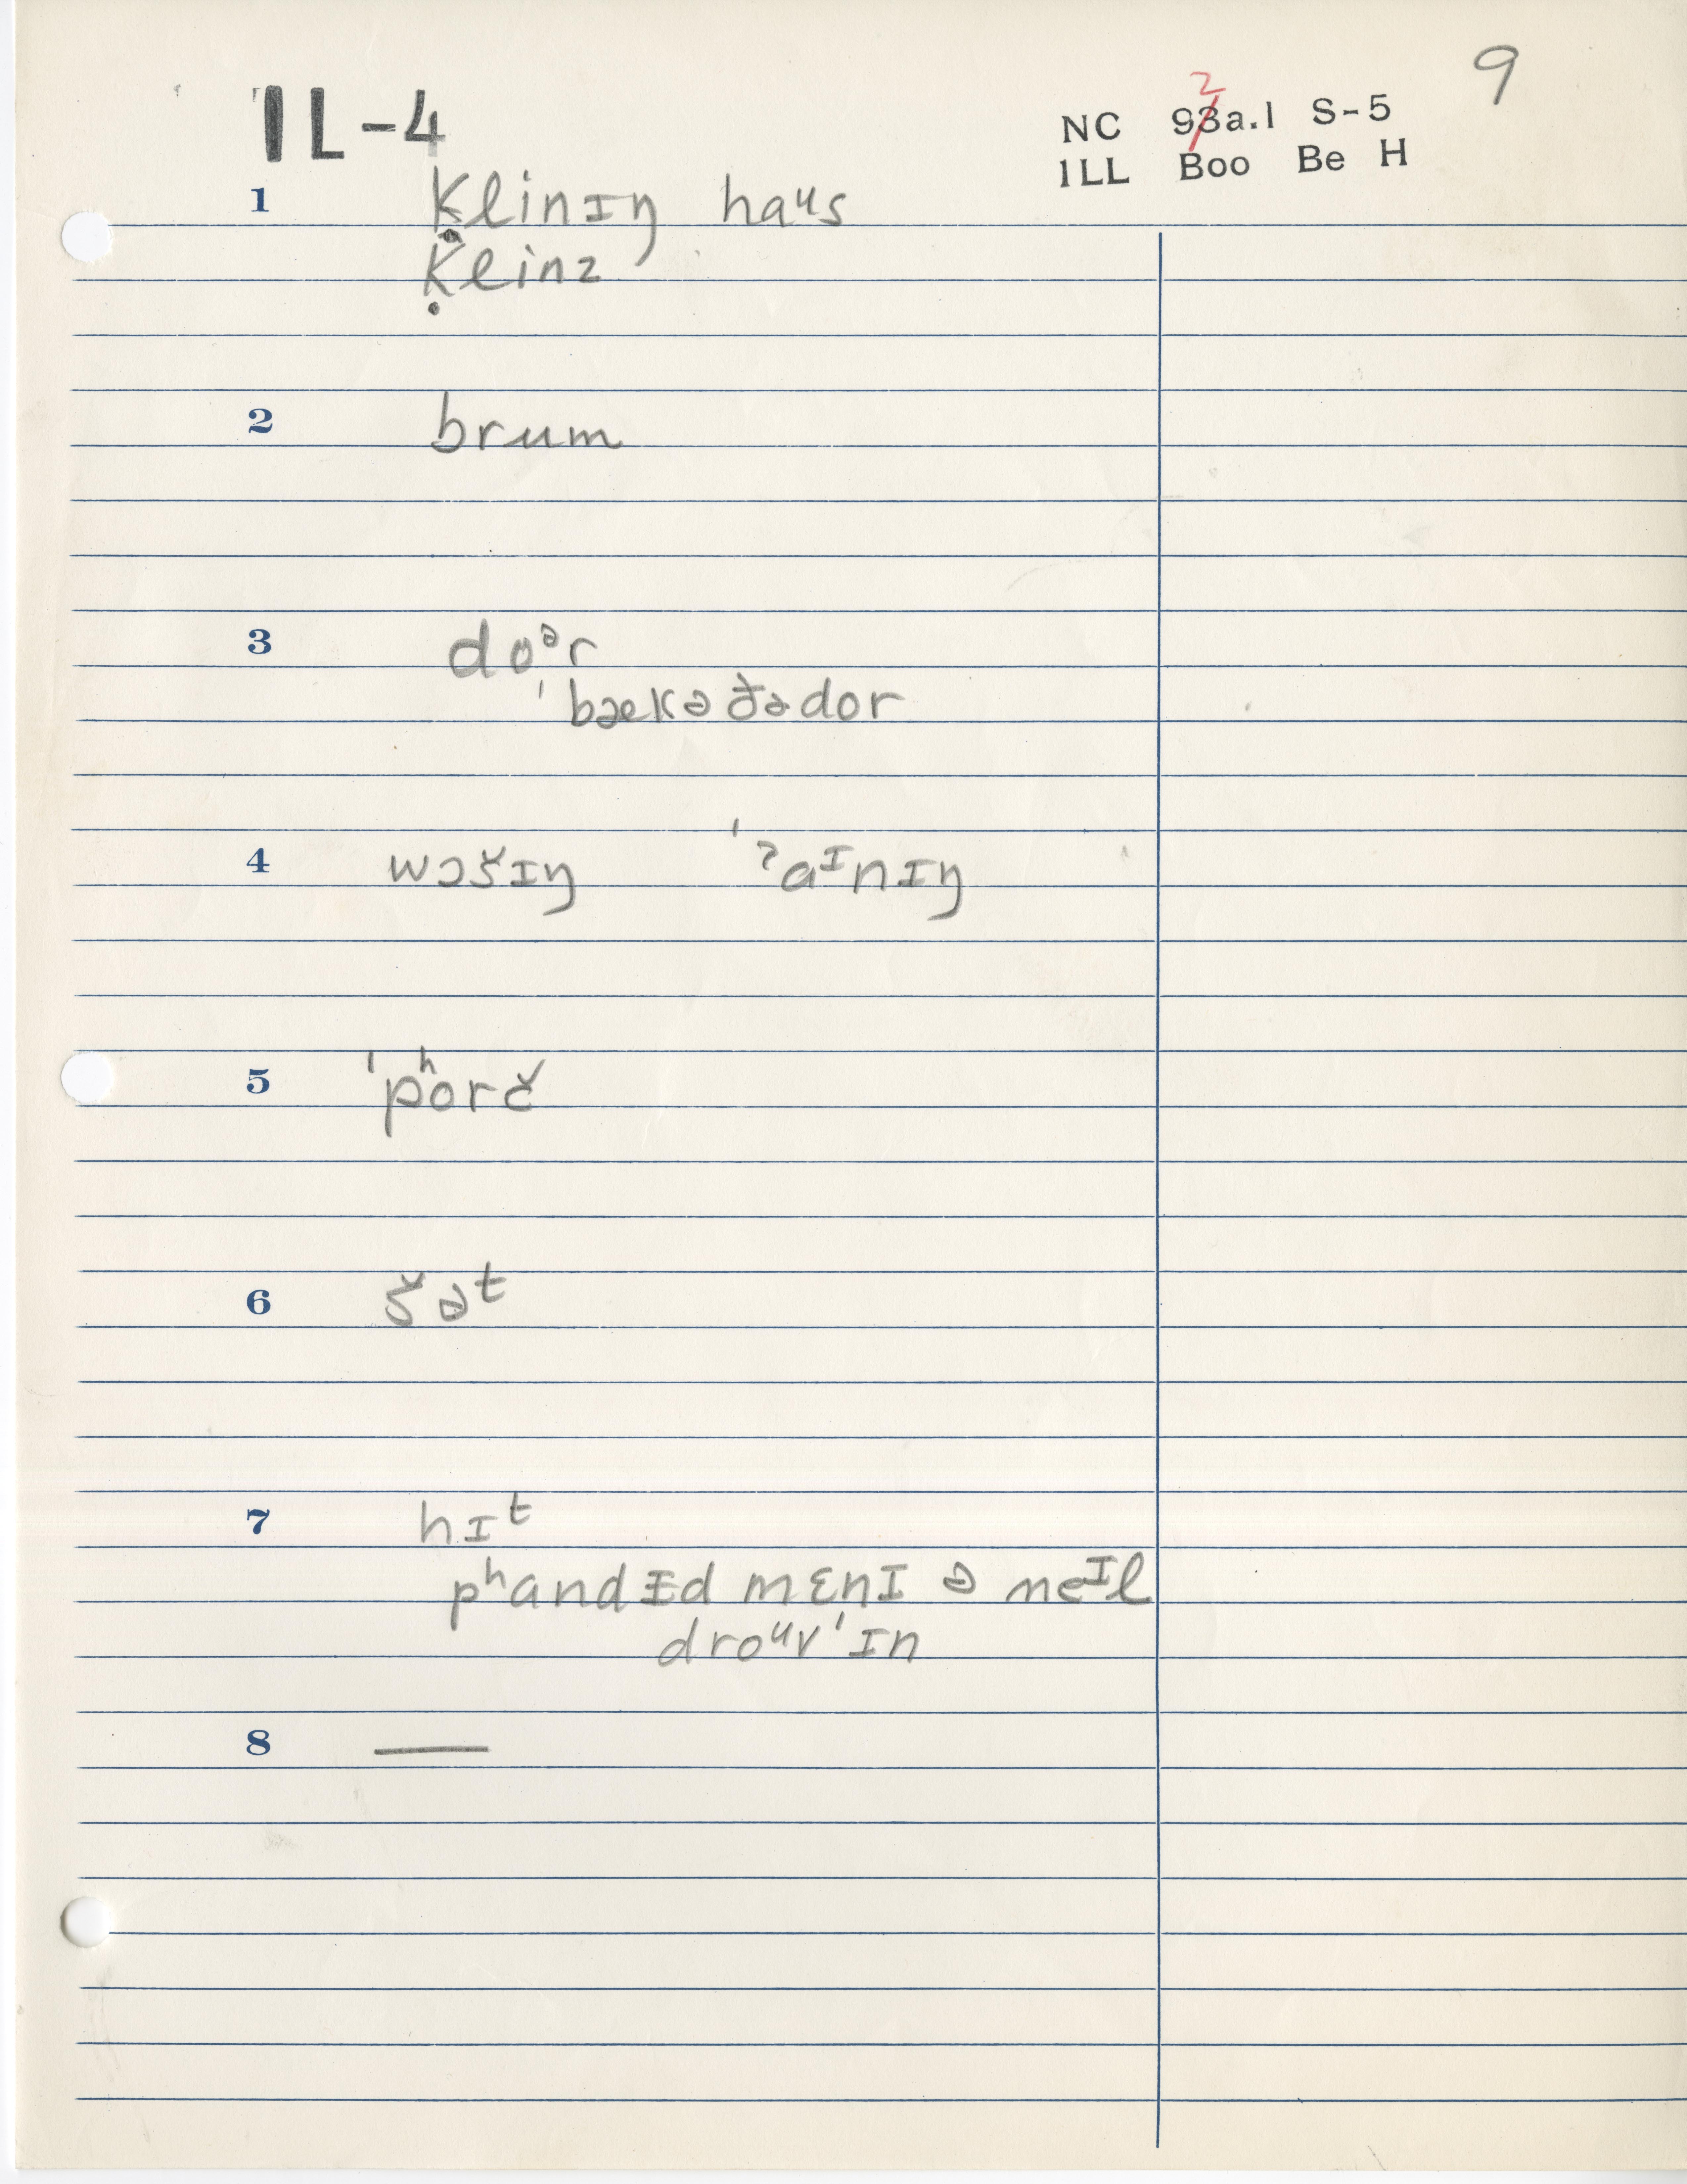 9
IL-4
NC 93a.1 S-5
2
ILL Boo Be H
1 ḳlinɪŋ haᵘs
ḳlinz
2 brum
3 doᵊr
ˈbækəðədor
4 wɔšɪŋ ˈʔaᶦnɪŋ
5 ˈpʰorč
6 šəᵗ
7 hɪᵗ
pʰandɪd mɛnɪ ə neᶦl
droᵘvˈɪn
8 —